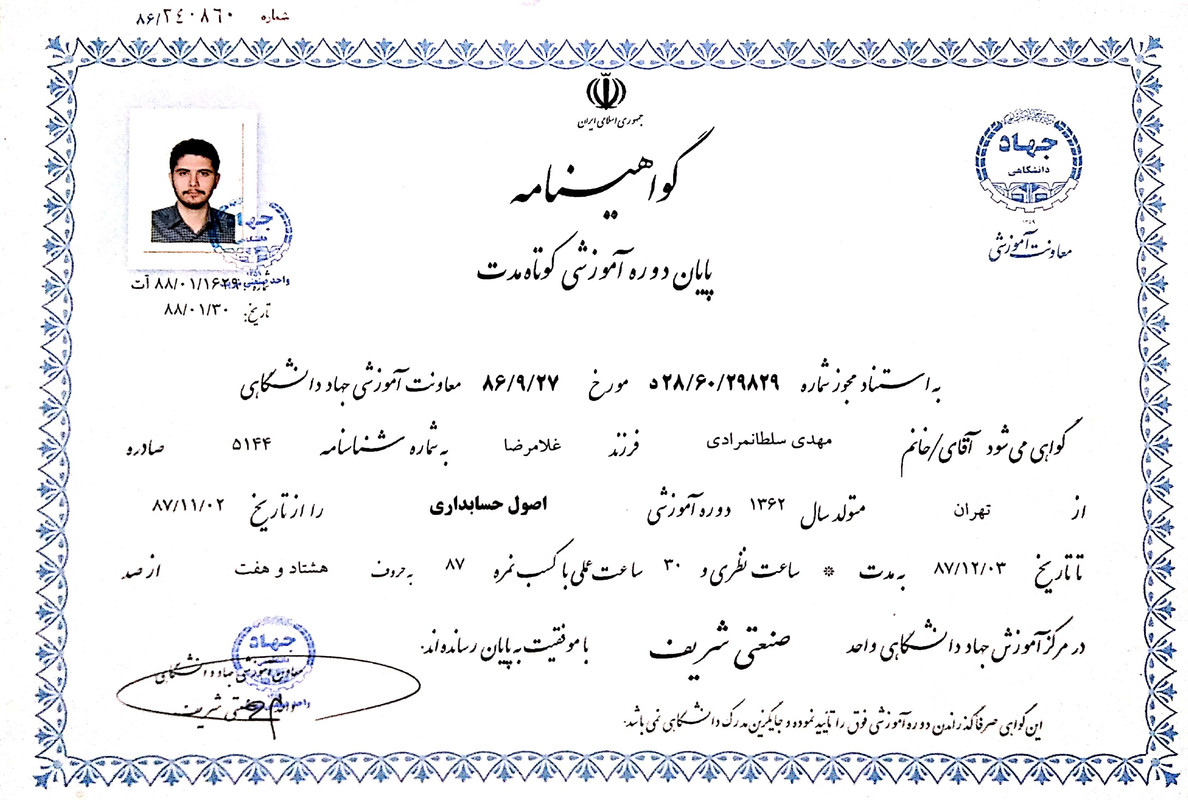 شماره ۸۶/۲۴۰۸۶۰
جمهوری اسلامی ایران
جهاد
دانشگاهی
۱۳۵۹
معاونت آموزشی
گواهینامه
پایان دوره آموزشی کوتاه مدت
جهاد
دانشگاهی
واحد صنعتی شریف
۸۸/۰۱/۱۶۲۹ آت
تاریخ: ۸۸/۰۱/۳۰
به استناد مجوز شماره ۵۲۸/۶۰/۲۹۸۲۹ مورخ ۸۶/۹/۲۷ معاونت آموزشی جهاد دانشگاهی
گواهی می شود آقای/خانم مهدی سلطانمرادی فرزند غلامرضا به شماره شناسنامه ۵۱۴۴ صادره
از تهران متولد سال ۱۳۶۲ دوره آموزشی اصول حسابداری را از تاریخ ۸۷/۱۱/۰۲
تا تاریخ ۸۷/۱۲/۰۳ به مدت * ساعت نظری و ۳۰ ساعت عملی با کسب نمره ۸۷ به حروف هشتاد و هفت از صد
در مرکز آموزش جهاد دانشگاهی واحد صنعتی شریف با موفقیت به پایان رسانده اند.
جهاد
معاون آموزشی جهاد دانشگاهی
واحد صنعتی شریف
این گواهی صرفا گذراندن دوره آموزشی فوق را تایید نموده و جایگزین مدرک دانشگاهی نمی باشد.